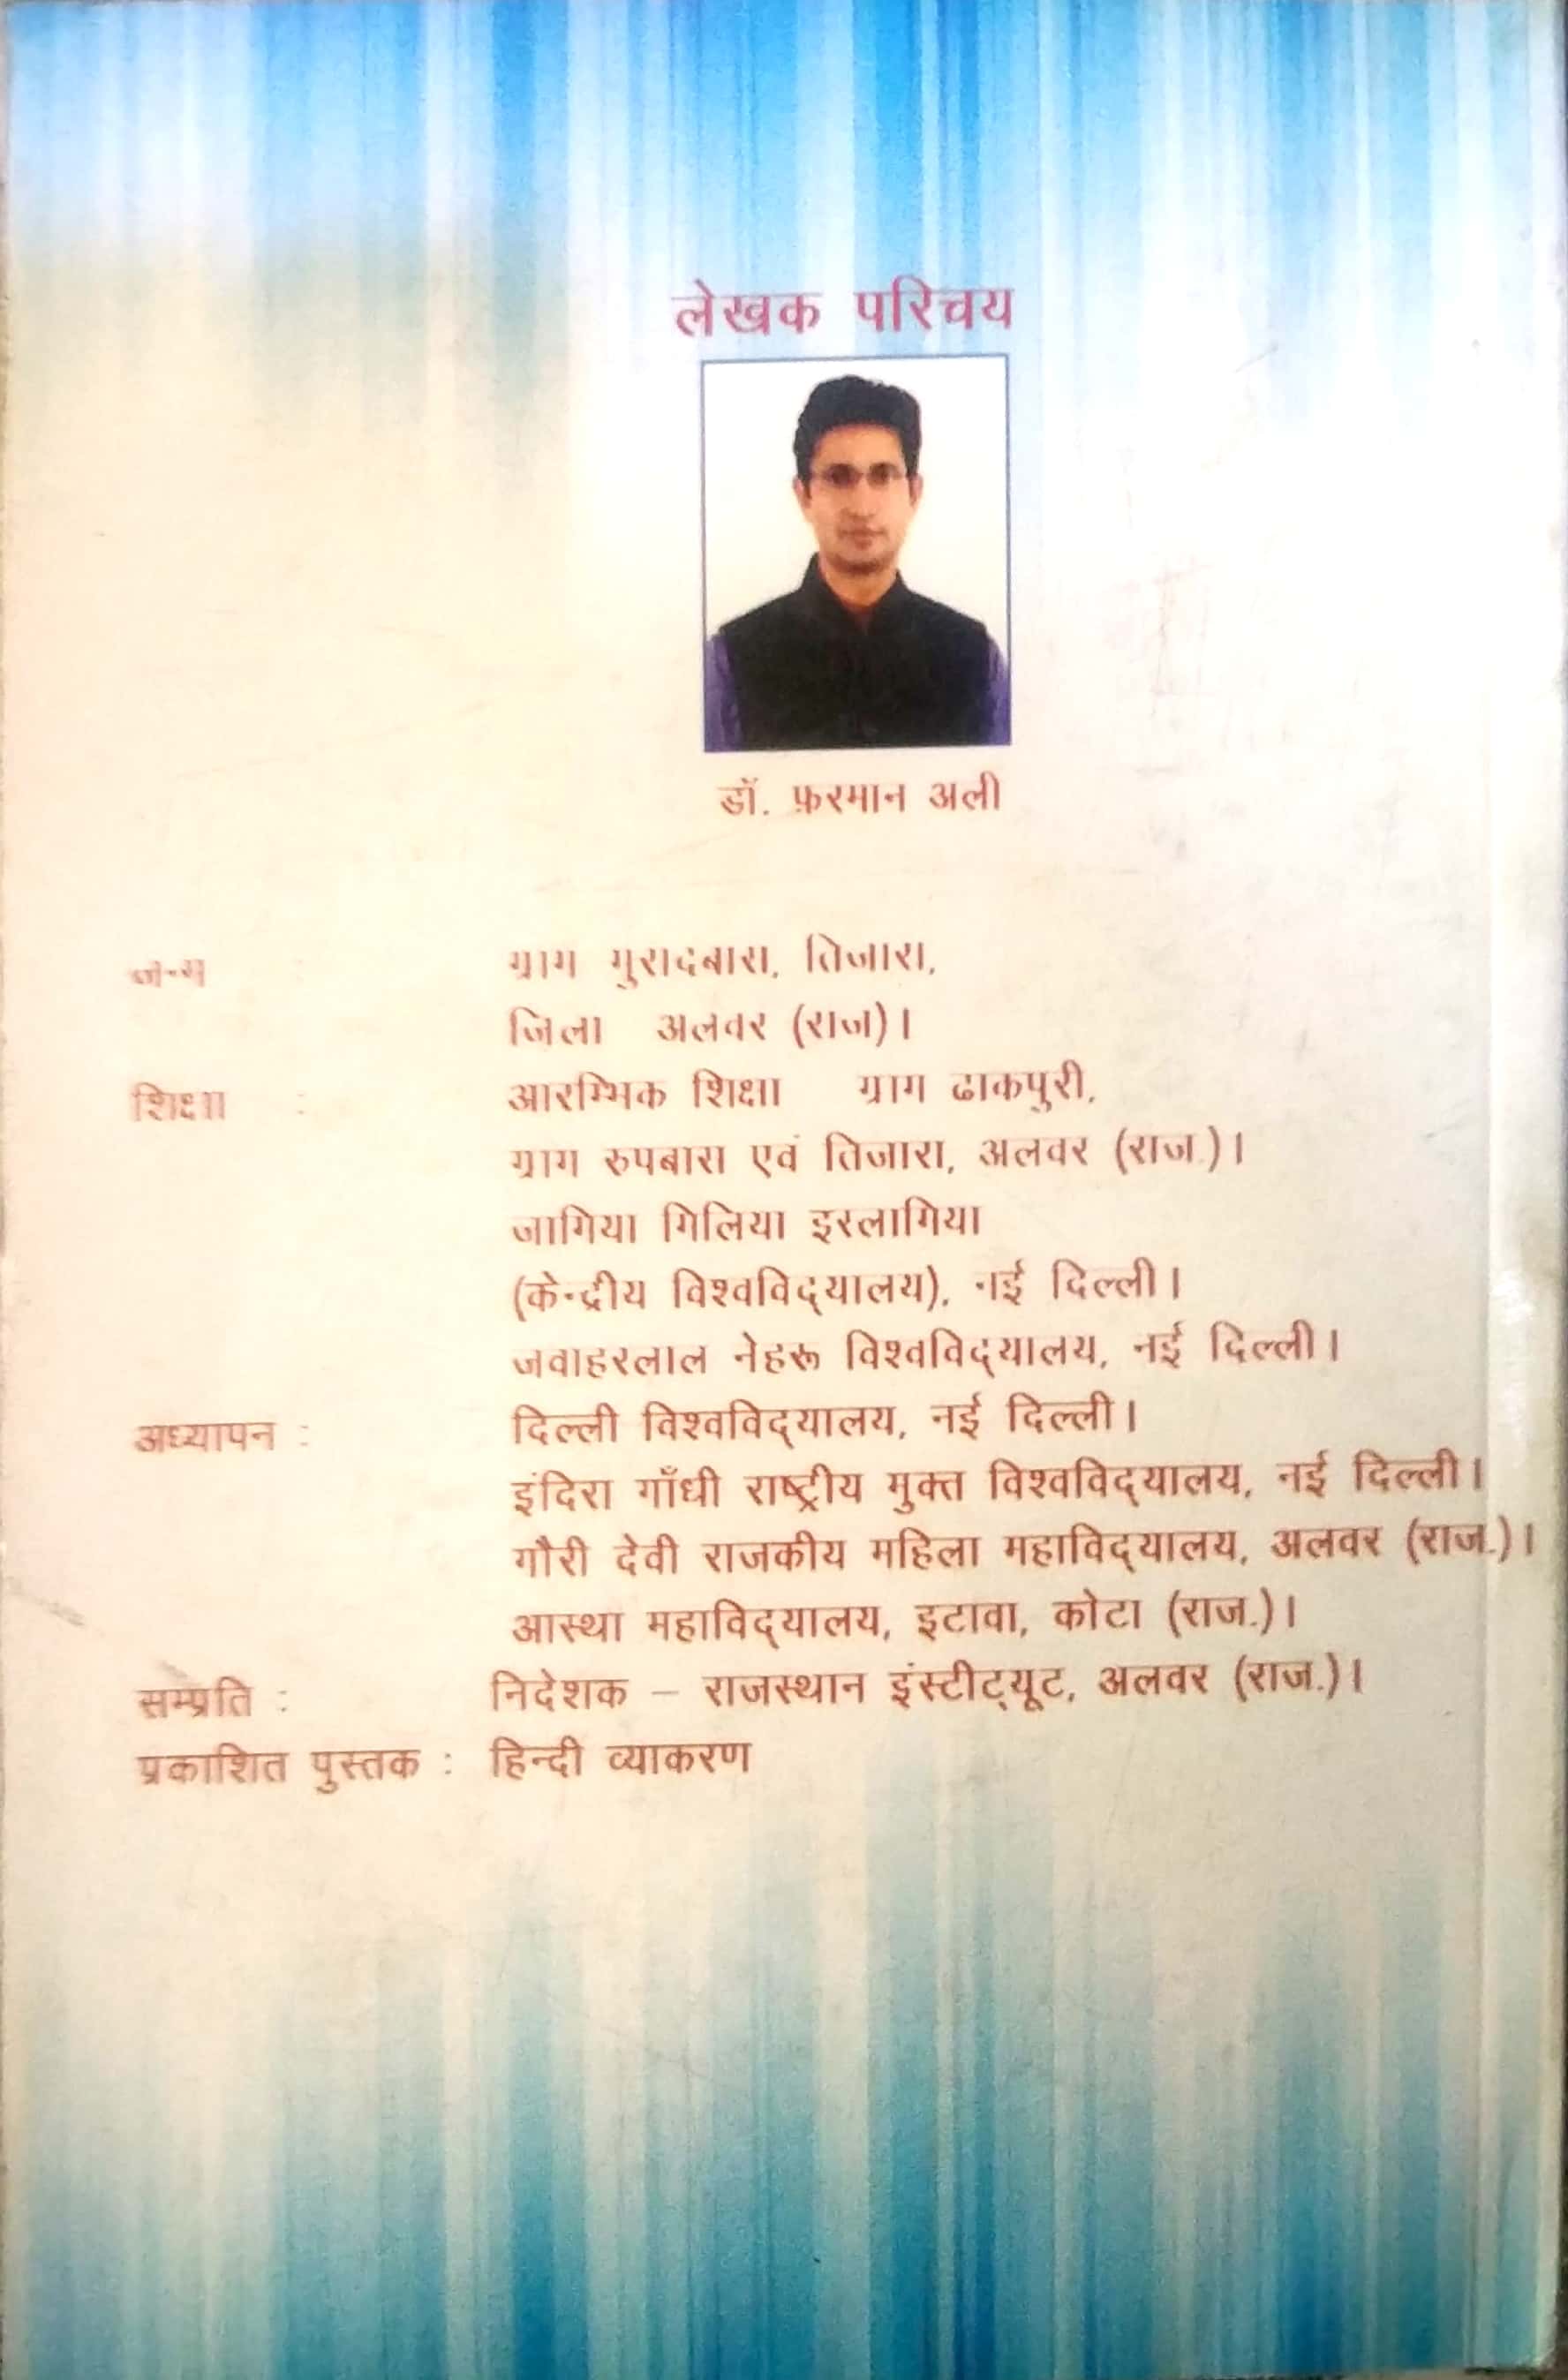 लेखक परिचय
डॉ. फ़रमान अली
जन्म : ग्राम मुरादबास, तिजारा,
जिला अलवर (राज)।
शिक्षा : आरम्भिक शिक्षा ग्राम ढाकपुरी,
ग्राम रुपबास एवं तिजारा, अलवर (राज.)।
जामिया मिलिया इस्लामिया
(केन्द्रीय विश्वविद्यालय), नई दिल्ली।
जवाहरलाल नेहरू विश्वविद्यालय, नई दिल्ली।
अध्यापन : दिल्ली विश्वविद्यालय, नई दिल्ली।
इंदिरा गाँधी राष्ट्रीय मुक्त विश्वविद्यालय, नई दिल्ली।
गौरी देवी राजकीय महिला महाविद्यालय, अलवर (राज.)।
आस्था महाविद्यालय, इटावा, कोटा (राज.)।
सम्प्रति : निदेशक – राजस्थान इंस्टीट्यूट, अलवर (राज.)।
प्रकाशित पुस्तक : हिन्दी व्याकरण